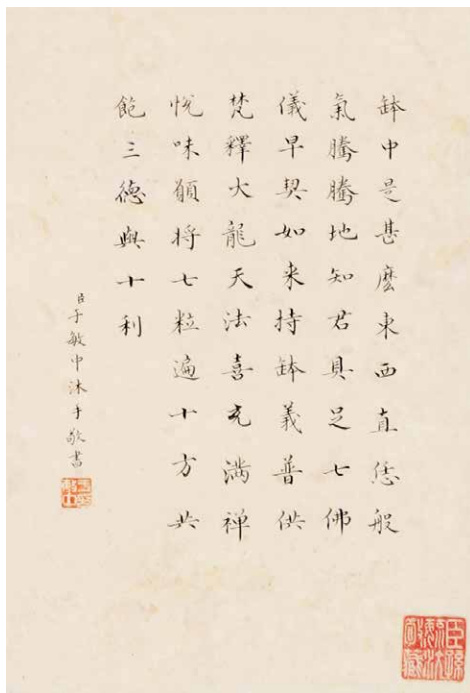 缽中是甚麽東西直恁般
氣騰騰地知君具足七佛
儀早契如来持缽義普供
梵釋大龍天法喜充滿禅
悅味願将七粒遍十方共
飽三德與十利
臣于敏中沐手敬書
臣孫毓汶敬藏